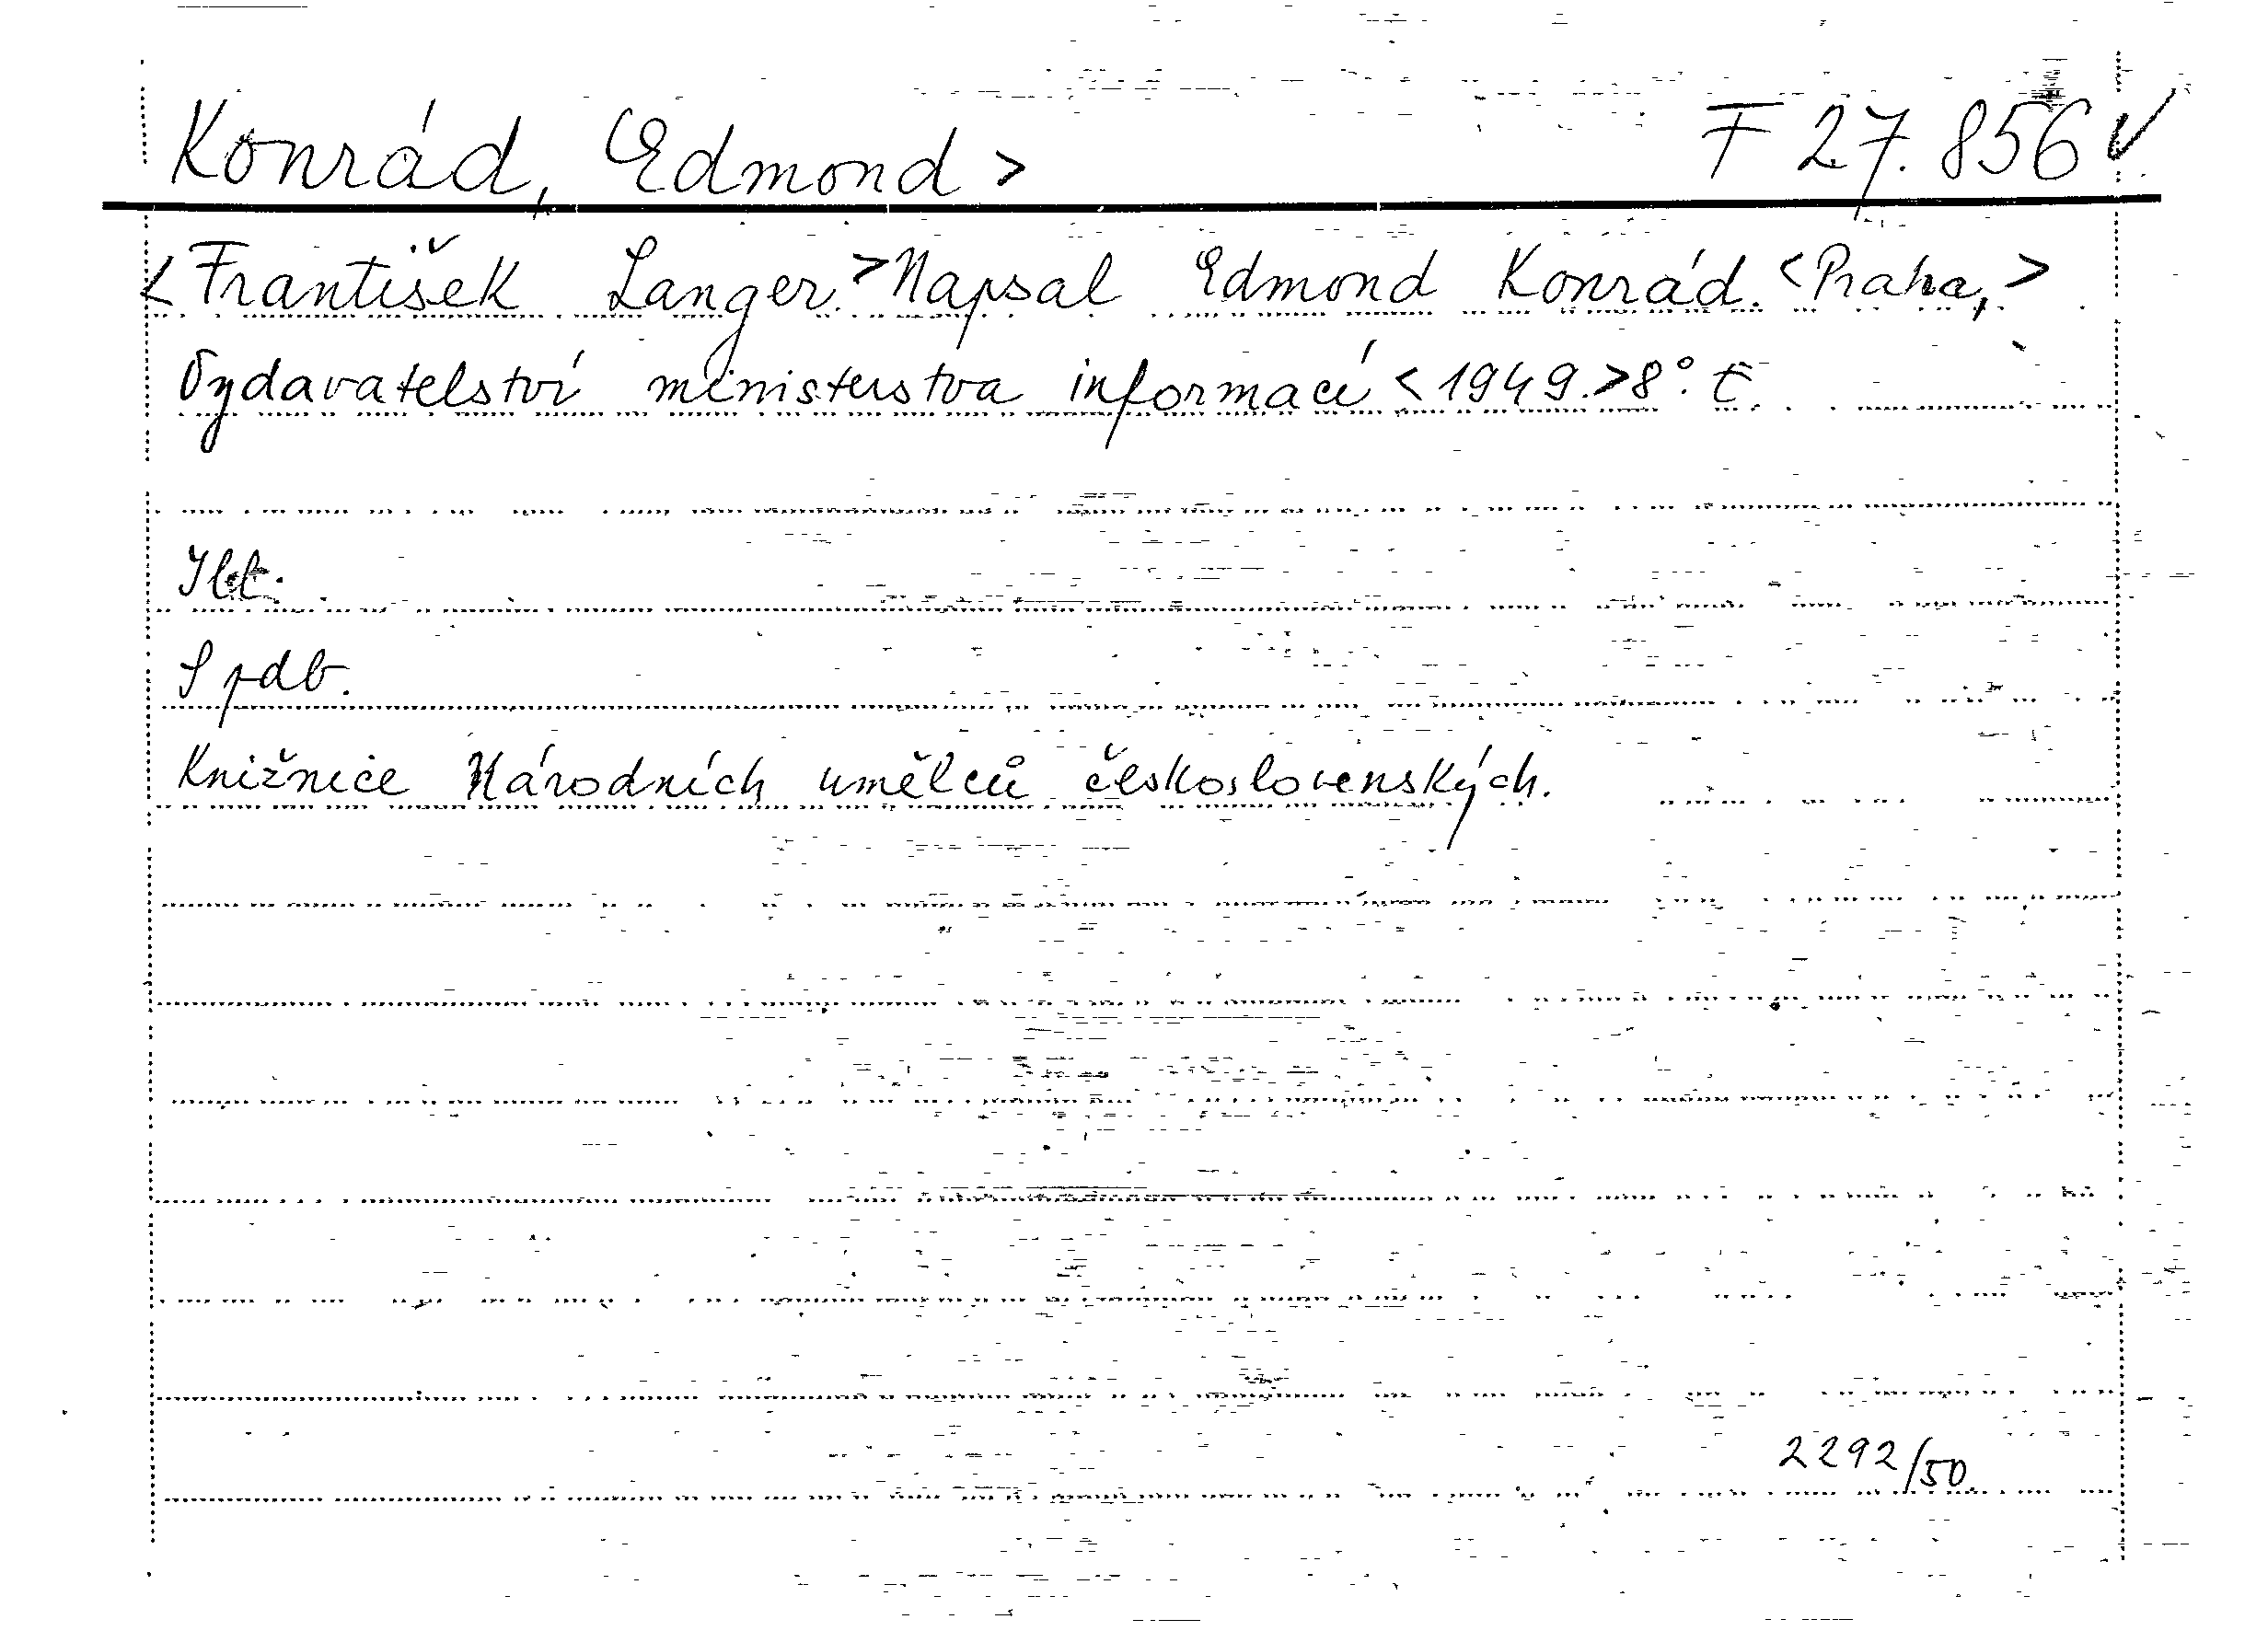 Konrád, Edmond > F 27.856 ✓
<František Langer.> Napsal Edmond Konrád. <Praha,>
Vydavatelství ministerstva informací <1949.> 8°.
Ilt.
S pdb.
Knižnice Národních umělců československých.
2292/50.